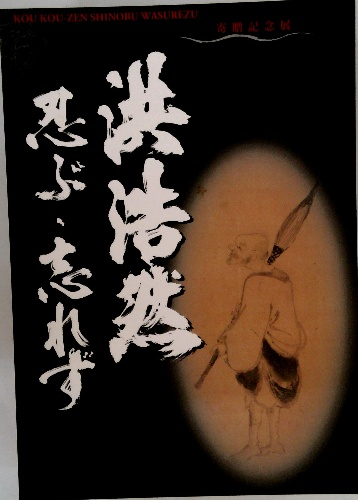 KOU KOU-ZEN SHINOBU WASUREZU
寄贈記念展
洪浩然
忍ぶ、忘れず